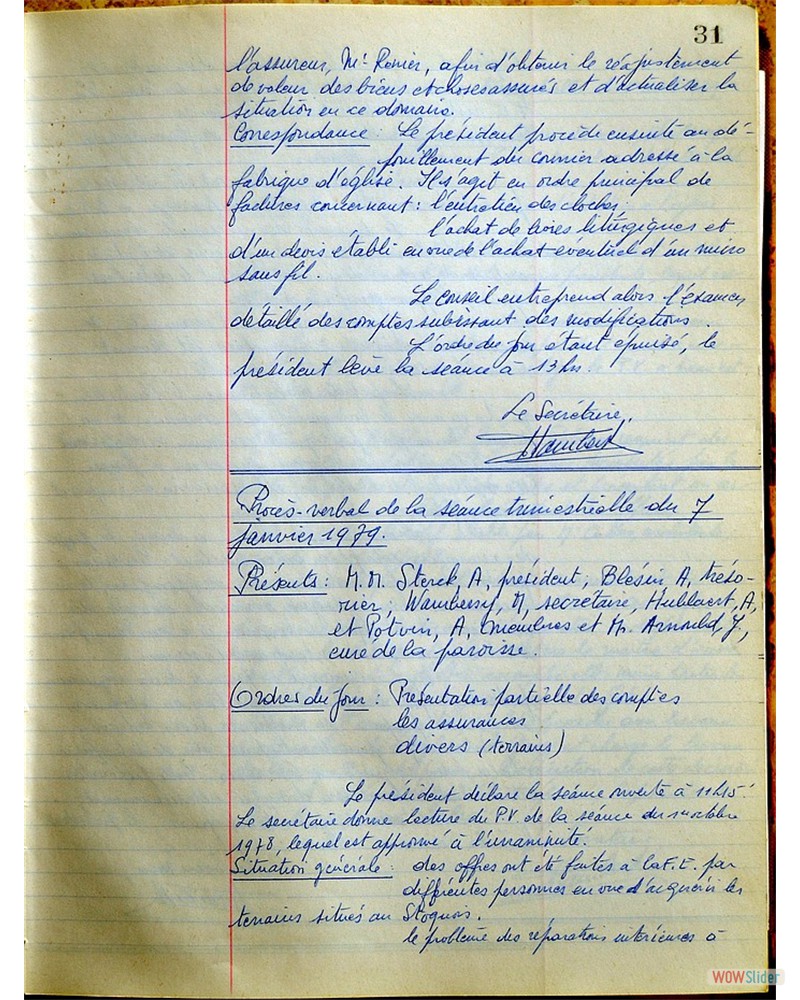 31
l'assureur, Mr Ronier, afin d'obtenir le réajustement
de valeur des biens et choses assurés et d'actualiser la
situation en ce domaine.
Correspondance : Le président procède ensuite au dé-
pouillement du courrier adressé à la
fabrique d'église. Il s'agit en ordre principal de
factures concernant : l'entretien des cloches.
l'achat de livres liturgiques et
d'un devis établi en vue de l'achat éventuel d'un micro
sans fil.
Le conseil entreprend alors l'examen
détaillé des comptes subissant des modifications.
L'ordre du jour étant épuisé, le
président lève la séance à 13 hrs.
Le Secrétaire,
Procès-verbal de la séance trimestrielle du 7
janvier 1979.
Présents : M.M. Sterck, A, président, Blésin A, tréso-
rier, Wambersy, M, secrétaire, Hublaert, A,
et Potvin, A, membres et Mr. Arnould, J,
curé de la paroisse.
Ordres du jour : Présentation partielle des comptes
les assurances
divers (terrains)
Le président déclare la séance ouverte à 11h15'.
Le secrétaire donne lecture du P.V. de la séance du 1er octobre
1978, lequel est approuvé à l'unanimité.
Situation générale : des offres ont été faites à la F.E. par
différentes personnes en vue d'acquérir les
terrains situés au Stoquois.
le problème des réparations intérieures à
WOWSlider